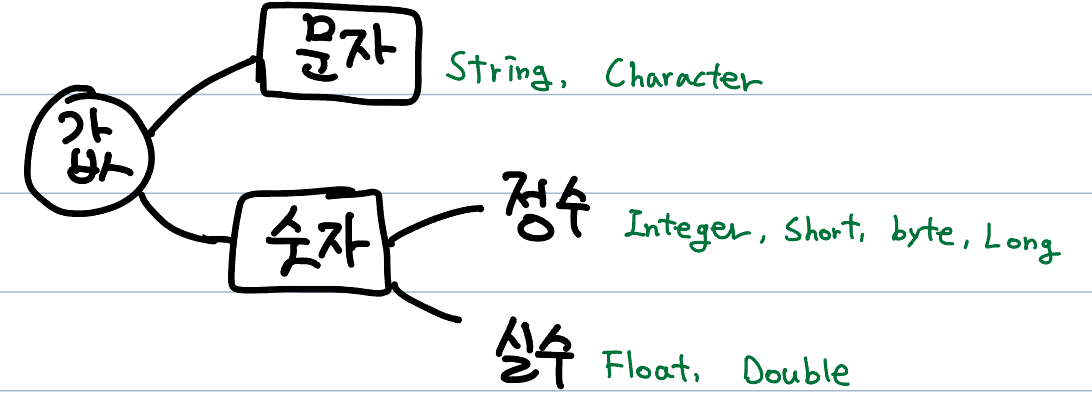 문자 String, Character
값
숫자
정수 Integer, Short, byte, Long
실수 Float, Double